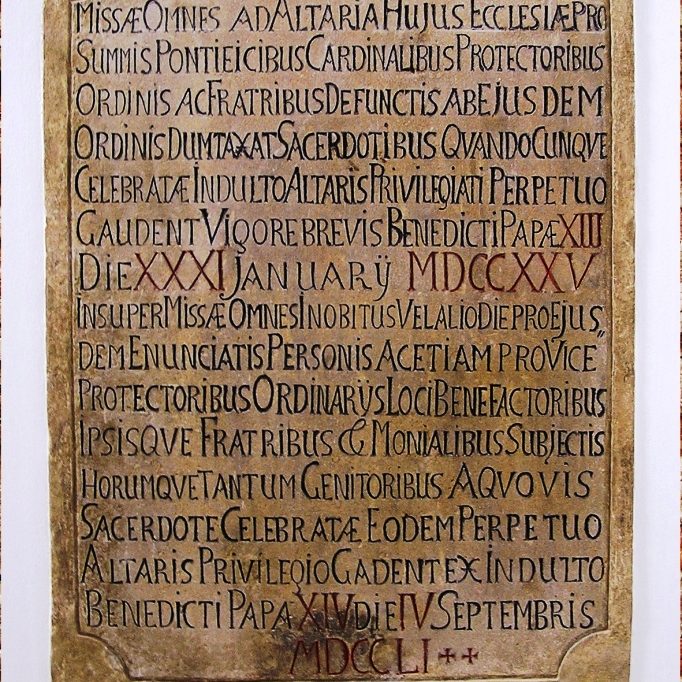 MISSÆ OMNES AD ALTARIA HUJUS ECCLESIÆ PRO
SUMMIS PONTIEICIBUS CARDINALIBUS PROTECTORIBUS
ORDINIS AC FRATRIBUS DEFUNCTIS AB EJUSDEM
ORDINIS DUMTAXAT SACERDOTIBUS QUANDOCUNQVE
CELEBRATÆ INDULTO ALTARIS PRIVILEGIATI PERPETUO
GAUDENT VIGORE BREVIS BENEDICTI PAPÆ XIII
DIE XXXI JANUARIJ MDCCXXV
INSUPER MISSÆ OMNES IN OBITUS VEL ALIO DIE PRO EJUS"
DEM ENUNCIATIS PERSONIS AC ETIAM PRO VICE
PROTECTORIBUS ORDINARIJS LOCI BENEFACTORIBUS
IPSISQVE FRATRIBUS & MONIALIBUS SUBJECTIS
HORUMQVE TANTUM GENITORIBUS A QVOVIS
SACERDOTE CELEBRATÆ EODEM PERPETUO
ALTARIS PRIVILEGIO GADENT EX INDULTO
BENEDICTI PAPÆ XIV DIE IV SEPTEMBRIS
MDCCLI ++